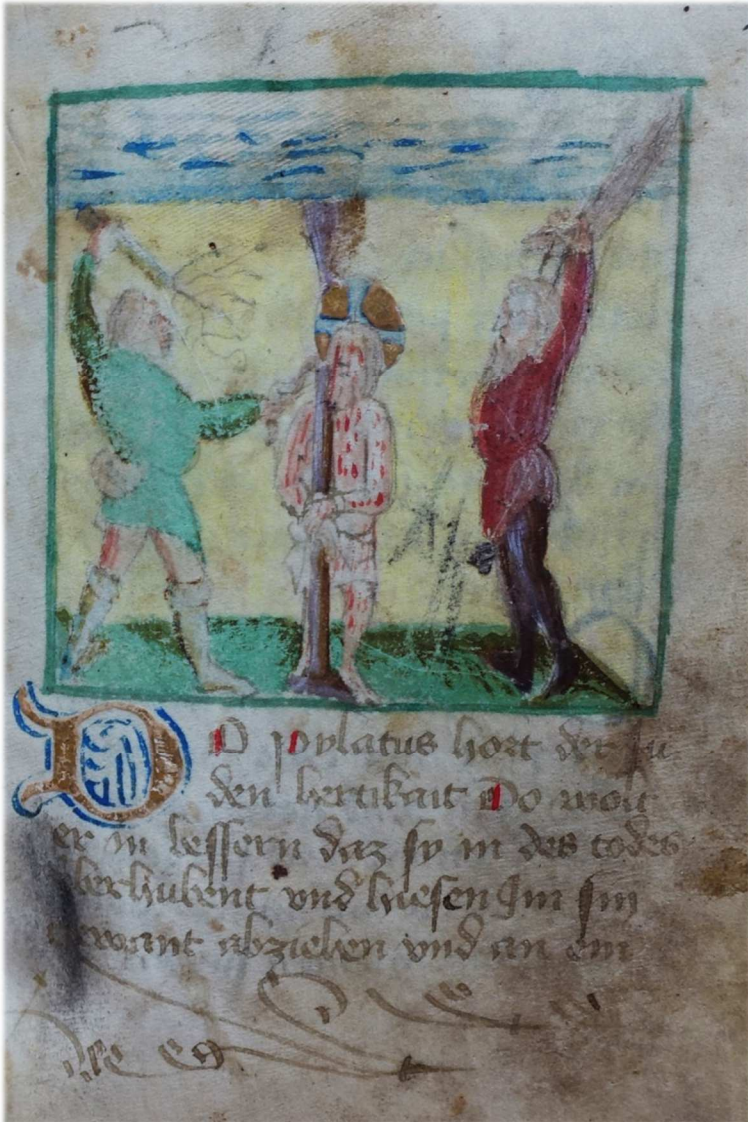 DO pylatus hort der Ju
den hertikait Do wolt
er in bessern daz sy in des todes
überhubent vnd hiesen Im sin
gewant abziehen vnd an ein